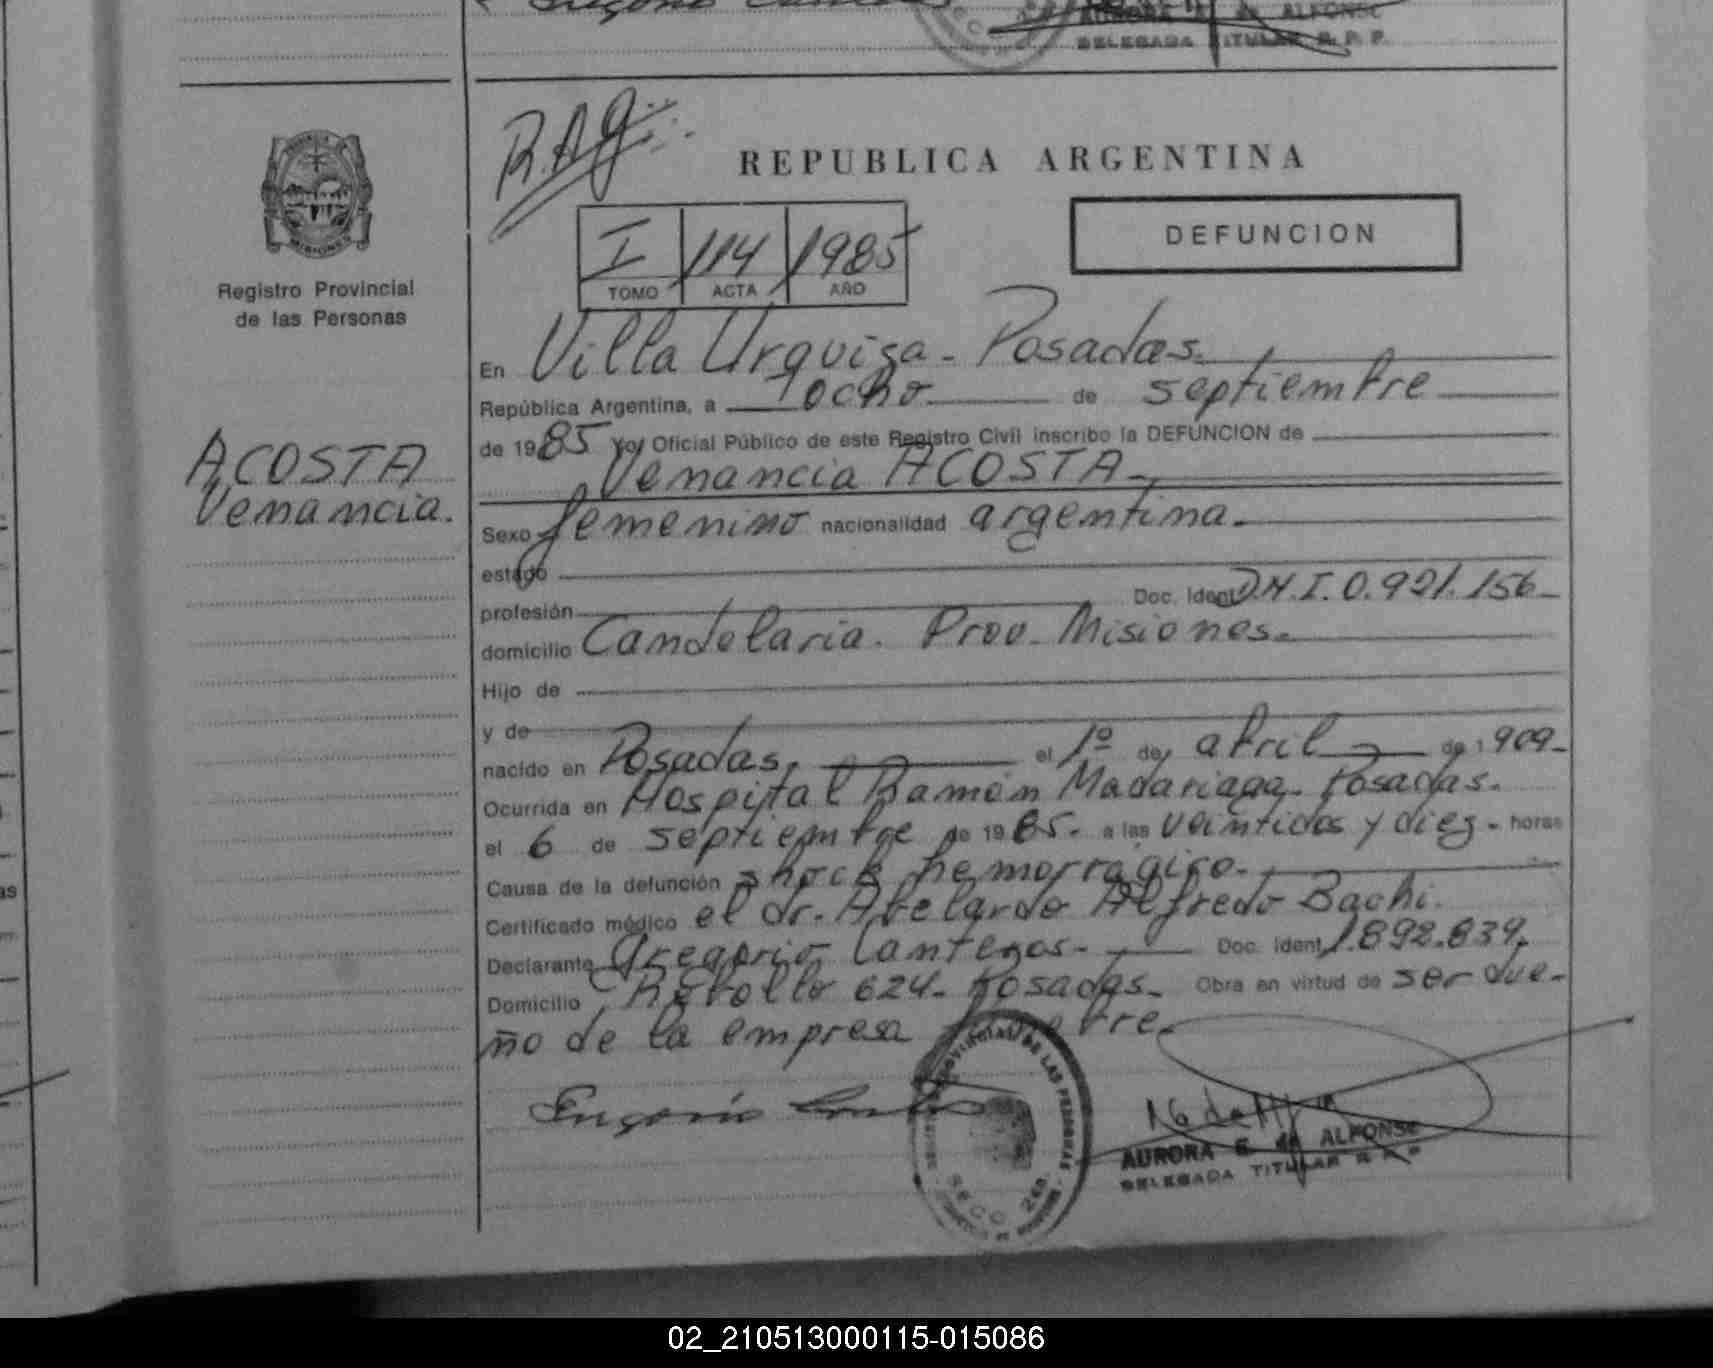 AURORA E. de ALFONSE
DELEGADA TITULAR R. P. P.
MISIONES
Registro Provincial
de las Personas
ACOSTA
Venancia.
R.A.G.
REPUBLICA ARGENTINA
I 114 1985
TOMO ACTA AÑO
DEFUNCION
En Villa Urquiza - Posadas.
República Argentina, a ocho de septiembre
de 1985 Yo, Oficial Público de este Registro Civil inscribo la DEFUNCION de
Venancia ACOSTA
Sexo femenino nacionalidad argentina.
estado
profesión Doc. Ident. D.N.I. 0.921.156
domicilio Candelaria. Prov. Misiones.
Hijo de
y de
nacido en Posadas. el 1º de abril de 1909
Ocurrida en Hospital Ramón Madariaga. Posadas.
el 6 de septiembre de 1985. a las veintidos y diez. horas
Causa de la defunción shock hemorrágico.
Certificado médico el dr. Abelardo Alfredo Bachi.
Declarante Gregorio Lanteros. Doc. Ident. 1.892.839.
Domicilio Rebollo 624. Posadas. Obra en virtud de ser due-
ño de la empresa
16 de
PROVINCIAL DE LAS PERSONAS
SECC. 249
AURORA E. de ALFONSE
DELEGADA TITULAR R. P. P.
02_210513000115-015086